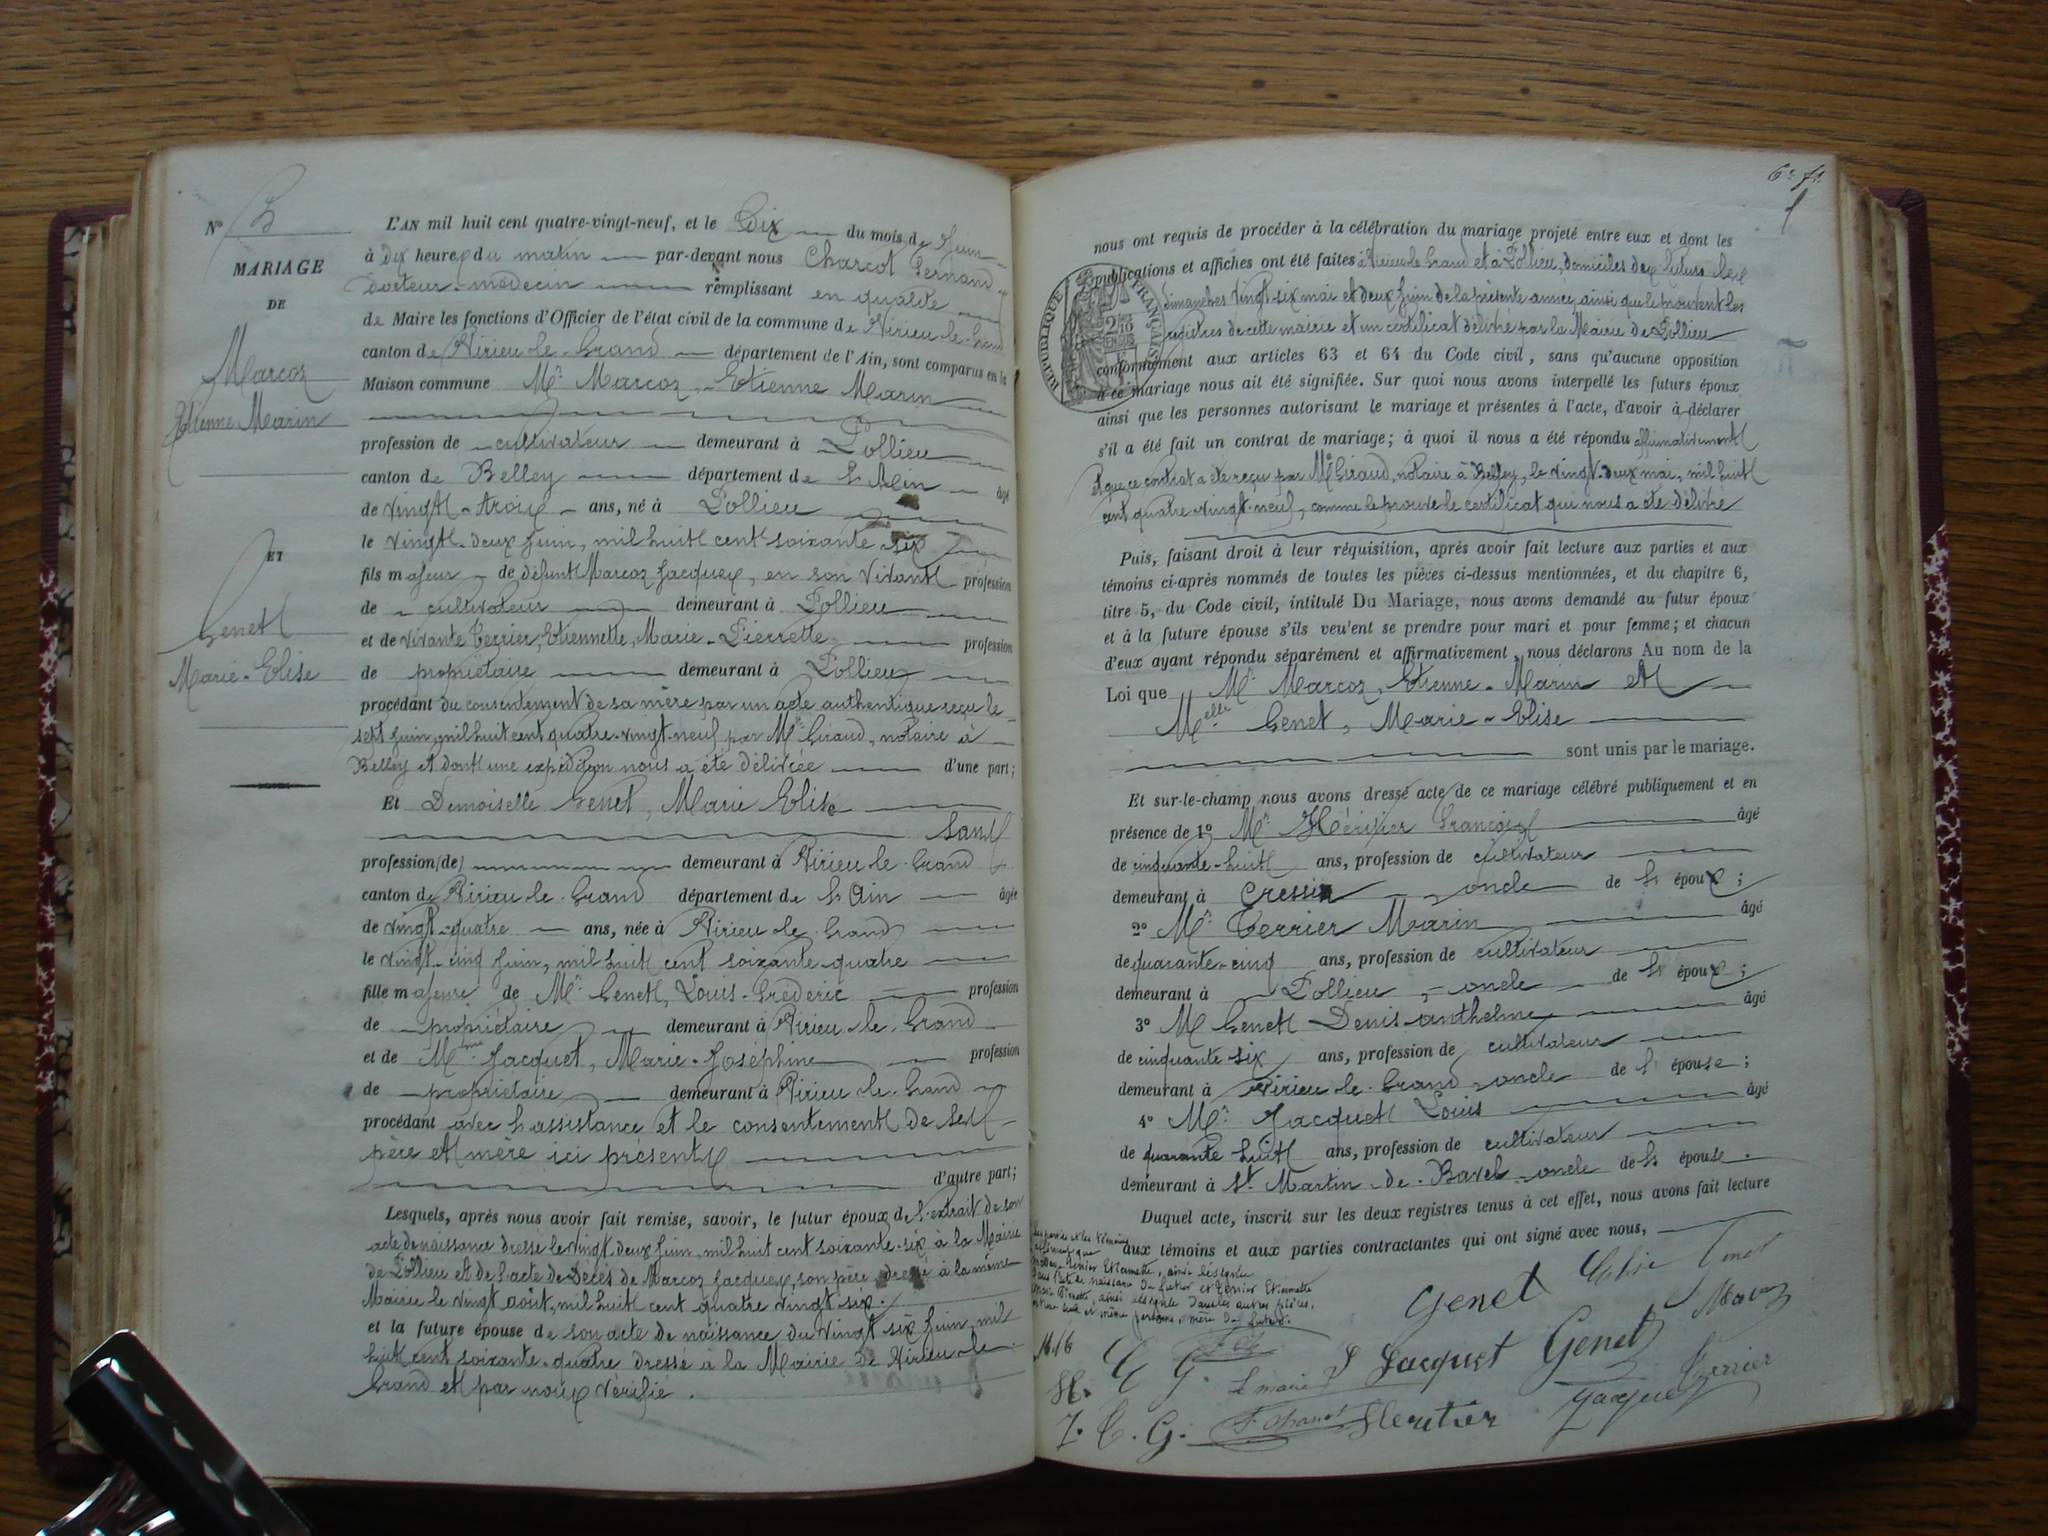 N° 5
MARIAGE
DE
Marcoz
Etienne Marin
ET
Genet
Marie-Elise
L'AN mil huit cent quatre-vingt-neuf, et le Dix du mois de Juin
à dix heures du matin par-devant nous Charcot Fernand
Docteur-médecin remplissant en qualité
de Maire les fonctions d'Officier de l'état civil de la commune de Virieu-le-Grand
canton de Virieu-le-Grand département de l'Ain, sont comparus en la
Maison commune Mr Marcoz, Etienne Marin
profession de cultivateur demeurant à Pollieu
canton de Belley département de l'Ain âgé
de vingt-trois ans, né à Pollieu
le vingt-deux juin, mil huit cent soixante six
fils majeur de défunt Marcoz Jacques, en son vivant profession
de cultivateur demeurant à Pollieu
et de vivante Terrier, Etiennette, Marie-Pierrette profession
de propriétaire demeurant à Pollieu
procédant du consentement de sa mère par un acte authentique reçu le
sept juin, mil huit cent quatre-vingt-neuf, par Me Giraud, notaire à
Belley et dont une expédition nous a été délivrée d'une part;
Et Demoiselle Genet, Marie Elise
sans
profession (de) demeurant à Virieu-le-Grand
canton de Virieu-le-Grand département de l'Ain âgée
de vingt-quatre ans, née à Virieu-le-Grand
le vingt-cinq juin, mil huit cent soixante-quatre
fille majeure de Mr Genet, Louis-Fréderic profession
de propriétaire demeurant à Virieu-le-Grand
et de Mme Jacquet, Marie-Joséphine profession
de propriétaire demeurant à Virieu-le-Grand
procédant avec l'assistance et le consentement de ses
père et mère ici présents
d'autre part;
Lesquels, après nous avoir fait remise, savoir, le futur époux de l'extrait de son
acte de naissance dressé le vingt-deux juin, mil huit cent soixante-six à la Mairie
de Pollieu et de l'acte de Décès de Marcoz Jacques, son père, dressé à la même
Mairie le vingt août, mil huit cent quatre vingt six.
et la future épouse de son acte de naissance du vingt six juin, mil
huit cent soixante-quatre dressé à la Mairie de Virieu-le-
Grand et par nous vérifié.
6e ft.
nous ont requis de procéder à la célébration du mariage projeté entre eux et dont les
publications et affiches ont été faites à Virieu-le-Grand et à Pollieu, domiciles des futurs les
dimanches vingt-six mai et deux juin de la présente année, ainsi que le prouvent les
registres de cette mairie et un certificat délivré par la Mairie de Pollieu
conformément aux articles 63 et 64 du Code civil, sans qu'aucune opposition
à ce mariage nous ait été signifiée. Sur quoi nous avons interpellé les futurs époux
ainsi que les personnes autorisant le mariage et présentes à l'acte, d'avoir à déclarer
s'il a été fait un contrat de mariage; à quoi il nous a été répondu affirmativement
et que ce contrat a été reçu par Me Giraud, notaire à Belley, le vingt-deux mai, mil huit
cent quatre-vingt-neuf, comme le prouve le certificat qui nous a été délivré
RÉPUBLIQUE FRANÇAISE
Puis, faisant droit à leur réquisition, après avoir fait lecture aux parties et aux
témoins ci-après nommés de toutes les pièces ci-dessus mentionnées, et du chapitre 6,
titre 5, du Code civil, intitulé Du Mariage, nous avons demandé au futur époux
et à la future épouse s'ils veu'ent se prendre pour mari et pour femme; et chacun
d'eux ayant répondu séparément et affirmativement, nous déclarons Au nom de la
Loi que Mr Marcoz, Etienne-Marin et
Melle Genet, Marie-Elise
sont unis par le mariage.
Et sur-le-champ nous avons dressé acte de ce mariage célébré publiquement et en
présence de 1° Mr Héritier François âgé
de cinquante-huit ans, profession de cultivateur
demeurant à Cressin oncle de l'époux;
2° Mr Terrier Marin âgé
de quarante-cinq ans, profession de cultivateur
demeurant à Pollieu, oncle de l'époux;
3° M Genet Denis-anthelme âgé
de cinquante-six ans, profession de cultivateur
demeurant à Virieu-le-Grand oncle de l'épouse;
4° Mr Jacquet Louis âgé
de quarante huit ans, profession de cultivateur
demeurant à St Martin-de-Bavel oncle de l'épouse.
Duquel acte, inscrit sur les deux registres tenus à cet effet, nous avons fait lecture
aux témoins et aux parties contractantes qui ont signé avec nous,
Les parties et les témoins
Terrier Etiennette, ainsi désignée
dans l'acte de naissance du futur et Terrier Etiennette
Marie Pierrette, ainsi désignée dans les autres pièces,
ont une seule et même personne, mère du futur.
Genet Elise Genet
Marcoz
E G. J Jacquet Genet
Le maire
Terrier
J. E. G. F. Charcot Heritier Jacquet